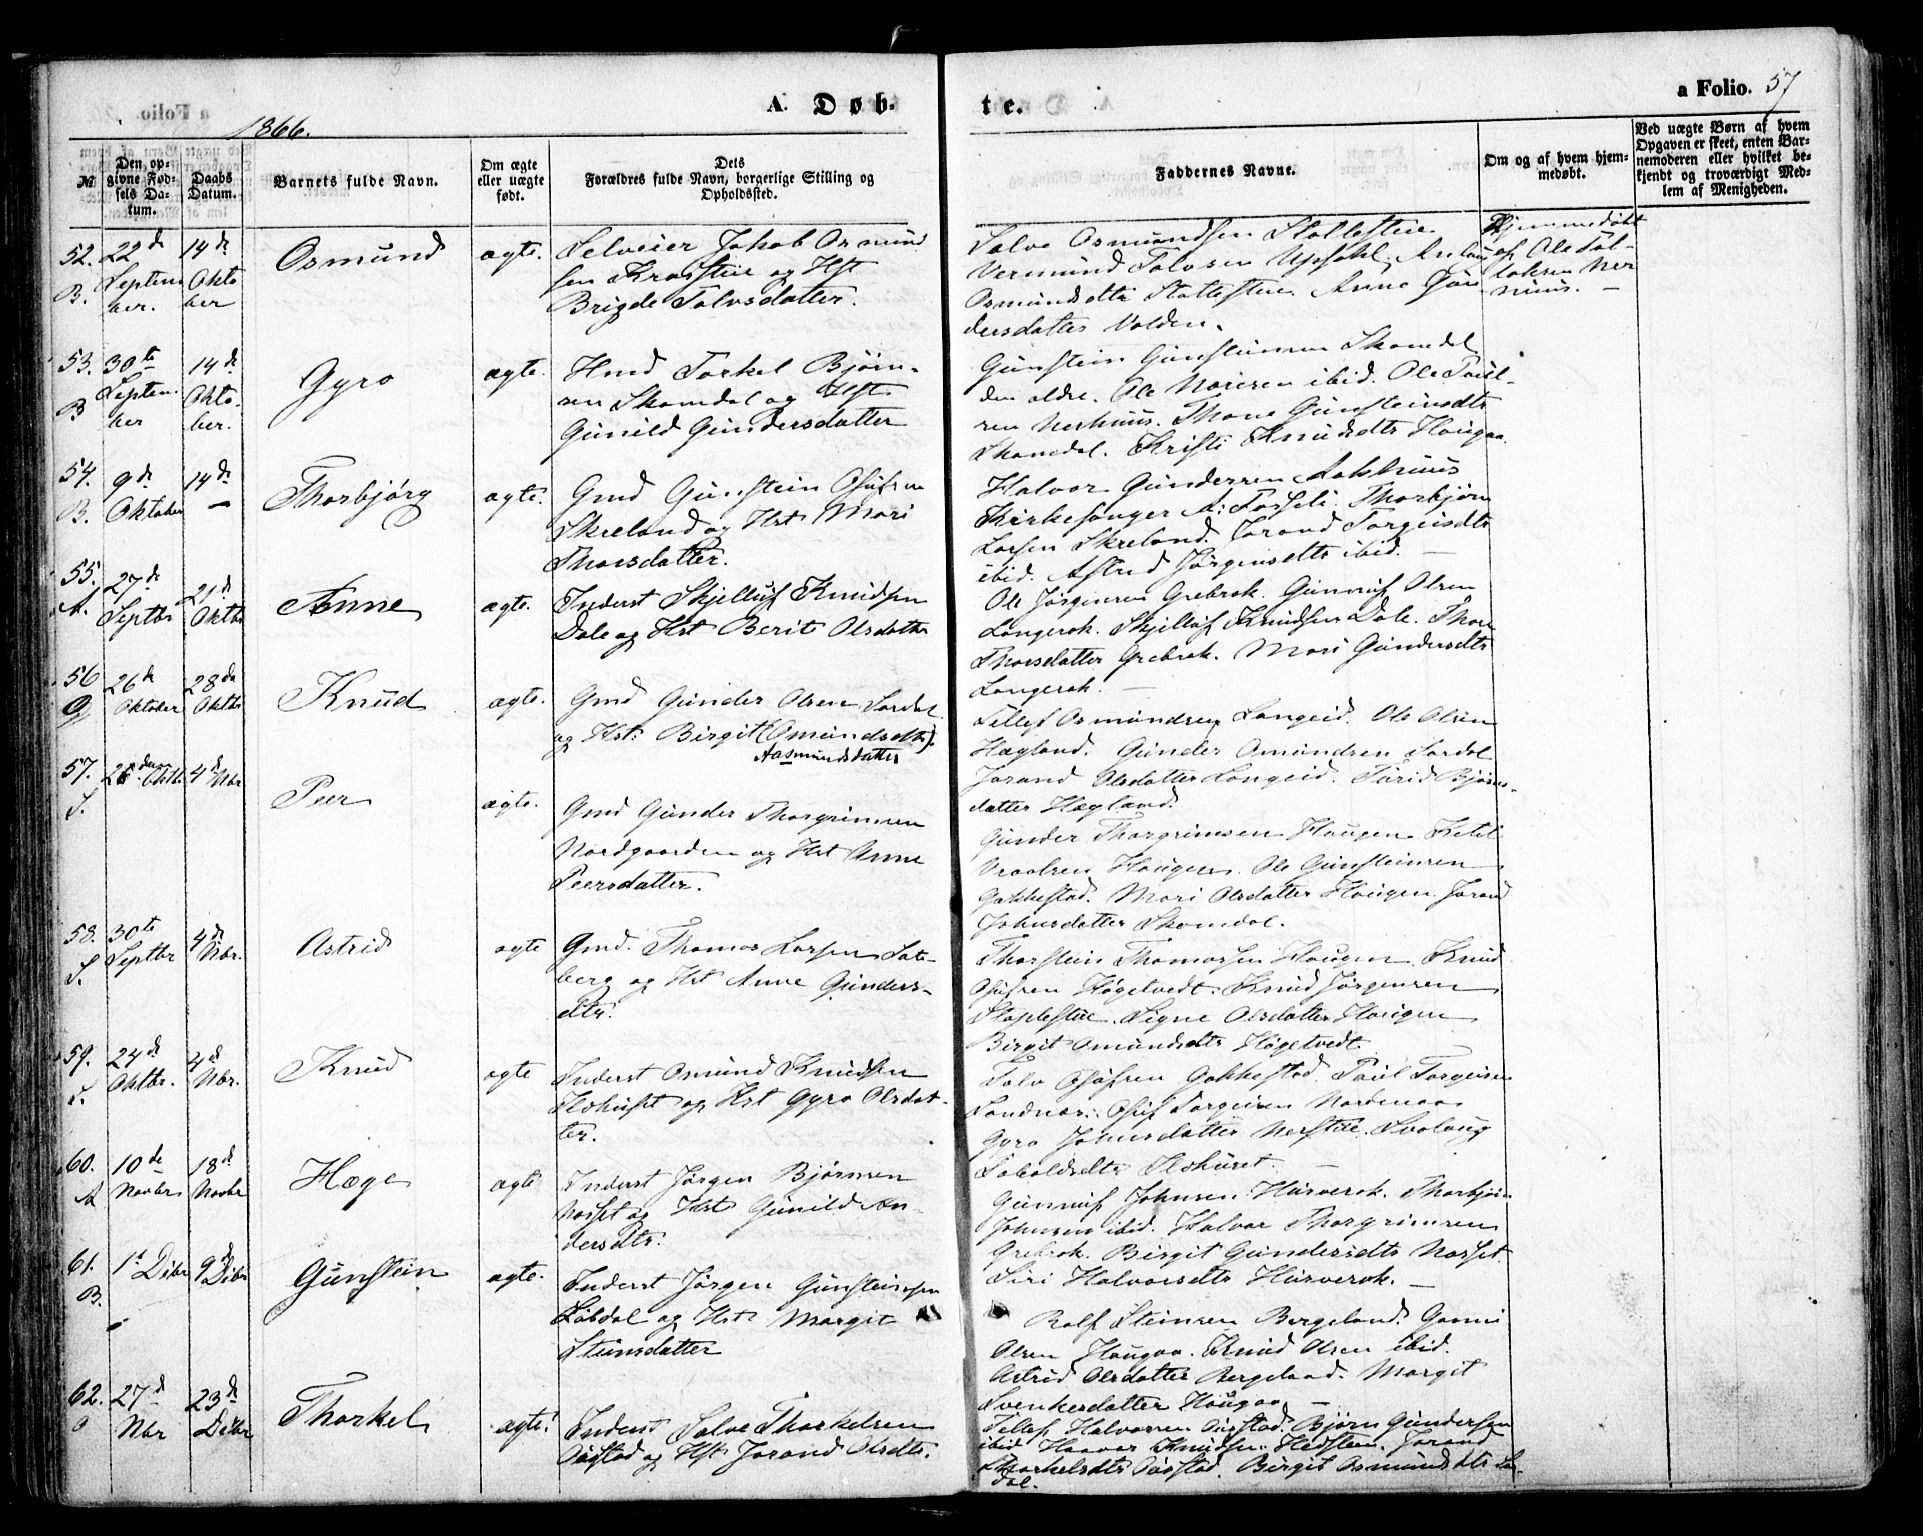 a Folio. 57
1866.
A. Døb-
te.
№
Den op-
givne Fød-
sels Da-
tum.
Daabs
Datum.
Barnets fulde Navn.
Om ægte
eller uægte
født.
Dets
Forældres fulde Navn, borgerlige Stilling og
Opholdssted.
Faddernes Navne.
Om og af hvem hjem-
medøbt.
Ved uægte Børn af hvem
Opgaven er skeet, enten Bar-
nemoderen eller hvilket be-
kjendt og troværdigt Med-
lem af Menigheden.
52. B. 22de Septem-
ber.
14de Okto
ber
Osmund
ægte.
Selveier Jakob Osmund
sen og Hst
Brigde Salvesdatter.
Salve Osmundsen
Vermund Salvesen Upsahl,
Osmundsdtr Anne Gun
dersdatter Valden.
Hjemmedøbt
af Ole
53. B 30te Septem-
ber
14de Okto-
ber.
Gyro
ægte.
Hmd Torkel Bjørn-
sen Skomdal og Hst
Gunild Gundersdatter
Gunstein Gunsteinsen Skomdal
den ældre. Ole ibid. Ole Paul-
sen Nerhuus. Thone Gunsteinsdtr
Skomdal. Kristi Knudsdtr Hougaa.
54. B. 9de Oktober
14de —
Thorbjørg
ægte.
Gmd Gunstein Osufsen
Skreland og Hst Mari
Thorsdatter.
Halvor Gundersen
Kirkesanger A: Torbjørn
Larsen Skreland. Jorand Torgeirsdtr
ibid. Astrid Jørgensdtr ibid. —
55. A. 27de Septbr
21de Oktbr
Anne
ægte.
Inderst Skjelluf Knudsen
Dale og Hst Berit Olsdatter
Ole Jørgensen Grebrok. Gunnuf Olsen
Langerak. Skjelluf Knudsen Dale. Thone
Thorsdatter Grebrok. Mari Gundersdtr
Langerak. —
56 26de Oktober
28de Oktbr
Knud
ægte.
Gmd Gunder Olsen Sordal
og Hst: Birgit (Omundsdtr).
Aasmundsdatter
Tellef Osmundsen Langeid. Ole Olsen
Hægland. Gunder Omundsen Sordal
Jorand Olsdatter Langeid. Turid Bjørns-
datter Hægland.
57. S. Oktb
4d Nbr
Peer
ægte.
Gmd Gunder Thorgrimsen
Nordgaarden og Hst Anne
Peersdatter.
Gunder Thorgrimsen Hougen. Ketil
Hougen. Ole Gunsteinsen
Gakkestad. Mari Olsdatter Hougen. Jorand
Johnsdatter Skomdal.
58. S. 30te Septbr
4de Nbr.
Astrid
ægte
Gmd. Thomas Larsen Sat-
berg og Hst Anne Gunders-
dtr.
Thorstein Thomassen Hougen. Knud
Osufsen Høgetvedt. Knud Jørgensen
Signe Olsdatter Hougen
Birgit Omundsdtr Høgetvedt.
59. S. 24de Oktbr.
4de Nbr.
Knud
ægte
Inderst Osmund Knudsen
Ilohuset og Hst Gyro Olsdat-
ter.
Salve Osufsen Gakkestad. Paul Torgeirsen
Osuf Torgeirsen
Gyro Johnsdatter Nerstue.
Ilohuset. —
60. A 10de Novbr
18de Novbr
Hæge
ægte
Inderst Jørgen Bjørnsen
Nasset og Hst Gunild An-
dersdtr.
Gunnuf Johnsen Husverak. Thorbjørn
Johnsen ibid. Halvor Thorgrimsen
Grebrok. Birgit Gundersdtr Nasset.
Siri Halvorsdtr Husverak. —
61. B. 1ste Dcbr
9de Dcbr
Gunstein
ægte.
Inderst Jørgen Gunsteinsen
og Hst Margit
Steinsdatter
Rolf Steinsen Bergeland. Gunni
Olsen Hougaa. Knud Olsen ibid.
Astrid Olsdatter Bergeland. Margit
Svenkesdatter Hougaa —
62. 27de Nbr
23de Dcbr
Thorkel
ægte.
Inderst Salve Thorkelsen
og Hst Jorand Olsdtr.
Tellef Halvorsen Bjørn Gundersen
ibid. Haavor Knudsen Jorand
Thorkelsdtr Birgit Osmundsdtr Sor-
dal.